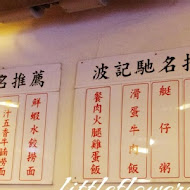 波記馳名推
艇仔粥
滑蛋牛肉飯
餐肉火腿雞蛋飯
名推薦
鮮蝦水餃撈麵
汁五香牛腩撈麵
littleflower